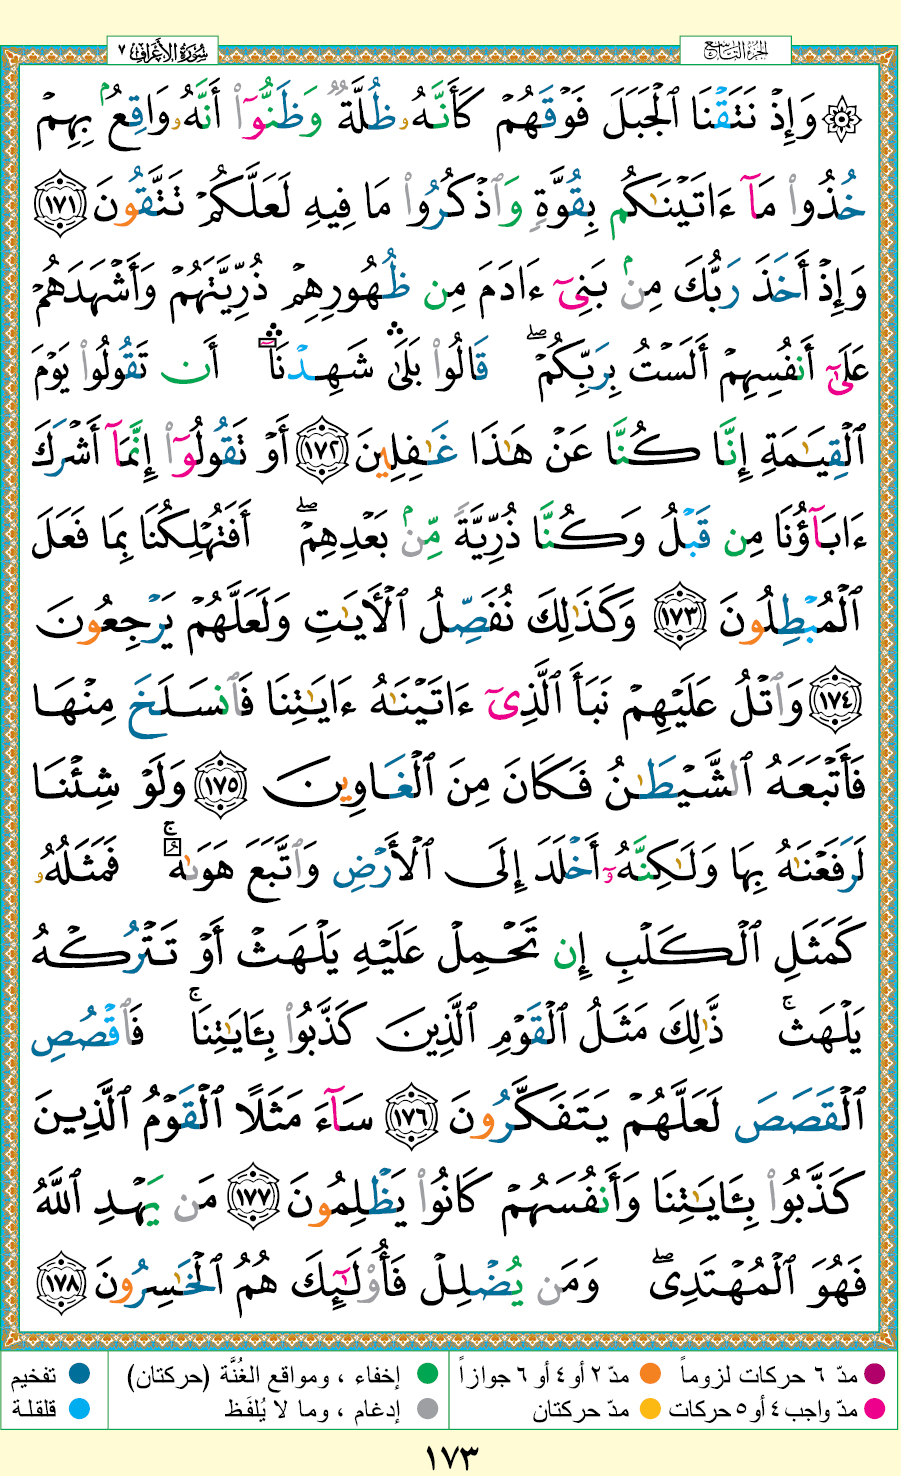 الجزء التاسع
سورة الأعراف ٧
۞ وَإِذۡ نَتَقۡنَا ٱلۡجَبَلَ فَوۡقَهُمۡ كَأَنَّهُۥ ظُلَّةٞ وَظَنُّوٓاْ أَنَّهُۥ وَاقِعُۢ بِهِمۡ
خُذُواْ مَآ ءَاتَيۡنَٰكُم بِقُوَّةٖ وَٱذۡكُرُواْ مَا فِيهِ لَعَلَّكُمۡ تَتَّقُونَ ١٧١
وَإِذۡ أَخَذَ رَبُّكَ مِنۢ بَنِيٓ ءَادَمَ مِن ظُهُورِهِمۡ ذُرِّيَّتَهُمۡ وَأَشۡهَدَهُمۡ
عَلَىٰٓ أَنفُسِهِمۡ أَلَسۡتُ بِرَبِّكُمۡۖ قَالُواْ بَلَىٰۛ شَهِدۡنَآۛ أَن تَقُولُواْ يَوۡمَ
ٱلۡقِيَٰمَةِ إِنَّا كُنَّا عَنۡ هَٰذَا غَٰفِلِينَ ١٧٢ أَوۡ تَقُولُوٓاْ إِنَّمَآ أَشۡرَكَ
ءَابَآؤُنَا مِن قَبۡلُ وَكُنَّا ذُرِّيَّةٗ مِّنۢ بَعۡدِهِمۡۖ أَفَتُهۡلِكُنَا بِمَا فَعَلَ
ٱلۡمُبۡطِلُونَ ١٧٣ وَكَذَٰلِكَ نُفَصِّلُ ٱلۡأٓيَٰتِ وَلَعَلَّهُمۡ يَرۡجِعُونَ
١٧٤ وَٱتۡلُ عَلَيۡهِمۡ نَبَأَ ٱلَّذِيٓ ءَاتَيۡنَٰهُ ءَايَٰتِنَا فَٱنسَلَخَ مِنۡهَا
فَأَتۡبَعَهُ ٱلشَّيۡطَٰنُ فَكَانَ مِنَ ٱلۡغَاوِينَ ١٧٥ وَلَوۡ شِئۡنَا
لَرَفَعۡنَٰهُ بِهَا وَلَٰكِنَّهُۥٓ أَخۡلَدَ إِلَى ٱلۡأَرۡضِ وَٱتَّبَعَ هَوَىٰهُۚ فَمَثَلُهُۥ
كَمَثَلِ ٱلۡكَلۡبِ إِن تَحۡمِلۡ عَلَيۡهِ يَلۡهَثۡ أَوۡ تَتۡرُكۡهُ
يَلۡهَثۚ ذَّٰلِكَ مَثَلُ ٱلۡقَوۡمِ ٱلَّذِينَ كَذَّبُواْ بِـَٔايَٰتِنَاۚ فَٱقۡصُصِ
ٱلۡقَصَصَ لَعَلَّهُمۡ يَتَفَكَّرُونَ ١٧٦ سَآءَ مَثَلًا ٱلۡقَوۡمُ ٱلَّذِينَ
كَذَّبُواْ بِـَٔايَٰتِنَا وَأَنفُسَهُمۡ كَانُواْ يَظۡلِمُونَ ١٧٧ مَن يَهۡدِ ٱللَّهُ
فَهُوَ ٱلۡمُهۡتَدِيۖ وَمَن يُضۡلِلۡ فَأُوْلَٰٓئِكَ هُمُ ٱلۡخَٰسِرُونَ ١٧٨
مدّ ٦ حركات لزوماً مدّ ٢ أو ٤ أو ٦ جوازاً إخفاء ، ومواقع الغُنَّة (حركتان) تفخيم
مدّ واجب ٤ أو ٥ حركات مدّ حركتان إدغام ، وما لا يُلفَظ قلقلة
١٧٣